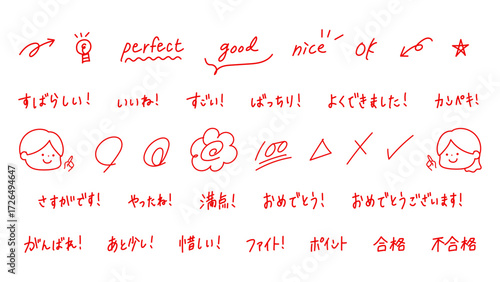 perfect good nice OK
すばらしい! いいね! すごい! ばっちり! よくできました! カンペキ!
100
さすがです! やったね! 満点! おめでとう! おめでとうございます!
がんばれ! あと少し! 惜しい! ファイト! ポイント 合格 不合格
Adobe Stock | #1726494647